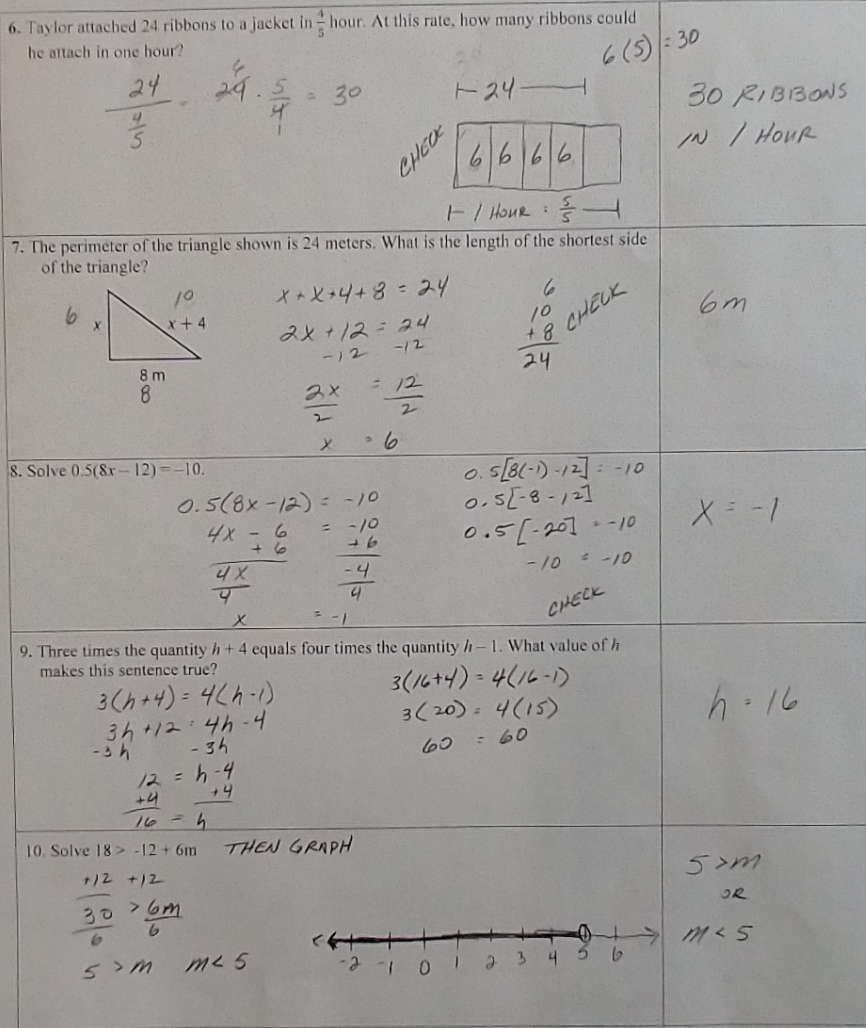 6. Taylor attached 24 ribbons to a jacket in 4/5 hour. At this rate, how many ribbons could
he attach in one hour?
6(5) = 30
24 / (4/5) = 24 6 · 5/4 1 = 30
24
CHECK
6 6 6 6
1 HOUR = 5/5
30 RIBBONS
IN 1 HOUR
7. The perimeter of the triangle shown is 24 meters. What is the length of the shortest side
of the triangle?
6 x
10
x + 4
8 m
8
x + x + 4 + 8 = 24
2x + 12 = 24
-12 -12
2x/2 = 12/2
x = 6
6
10
+ 8
24
CHECK
6m
8. Solve 0.5(8x – 12) = –10.
0.5(8x - 12) = -10
4x - 6 = -10
+ 6 + 6
4x/4 = -4/4
x = -1
0.5[8(-1) - 12] = -10
0.5[-8 - 12]
0.5[-20] = -10
-10 = -10
CHECK
x = -1
9. Three times the quantity h + 4 equals four times the quantity h – 1. What value of h
makes this sentence true?
3(h+4) = 4(h-1)
3h + 12 = 4h - 4
-3h -3h
12 = h - 4
+4 +4
16 = h
3(16+4) = 4(16-1)
3(20) = 4(15)
60 = 60
h = 16
10. Solve 18 > -12 + 6m THEN GRAPH
+12 +12
30/6 > 6m/6
5 > m m < 5
-2 -1 0 1 2 3 4 5 6
5 > m
OR
m < 5